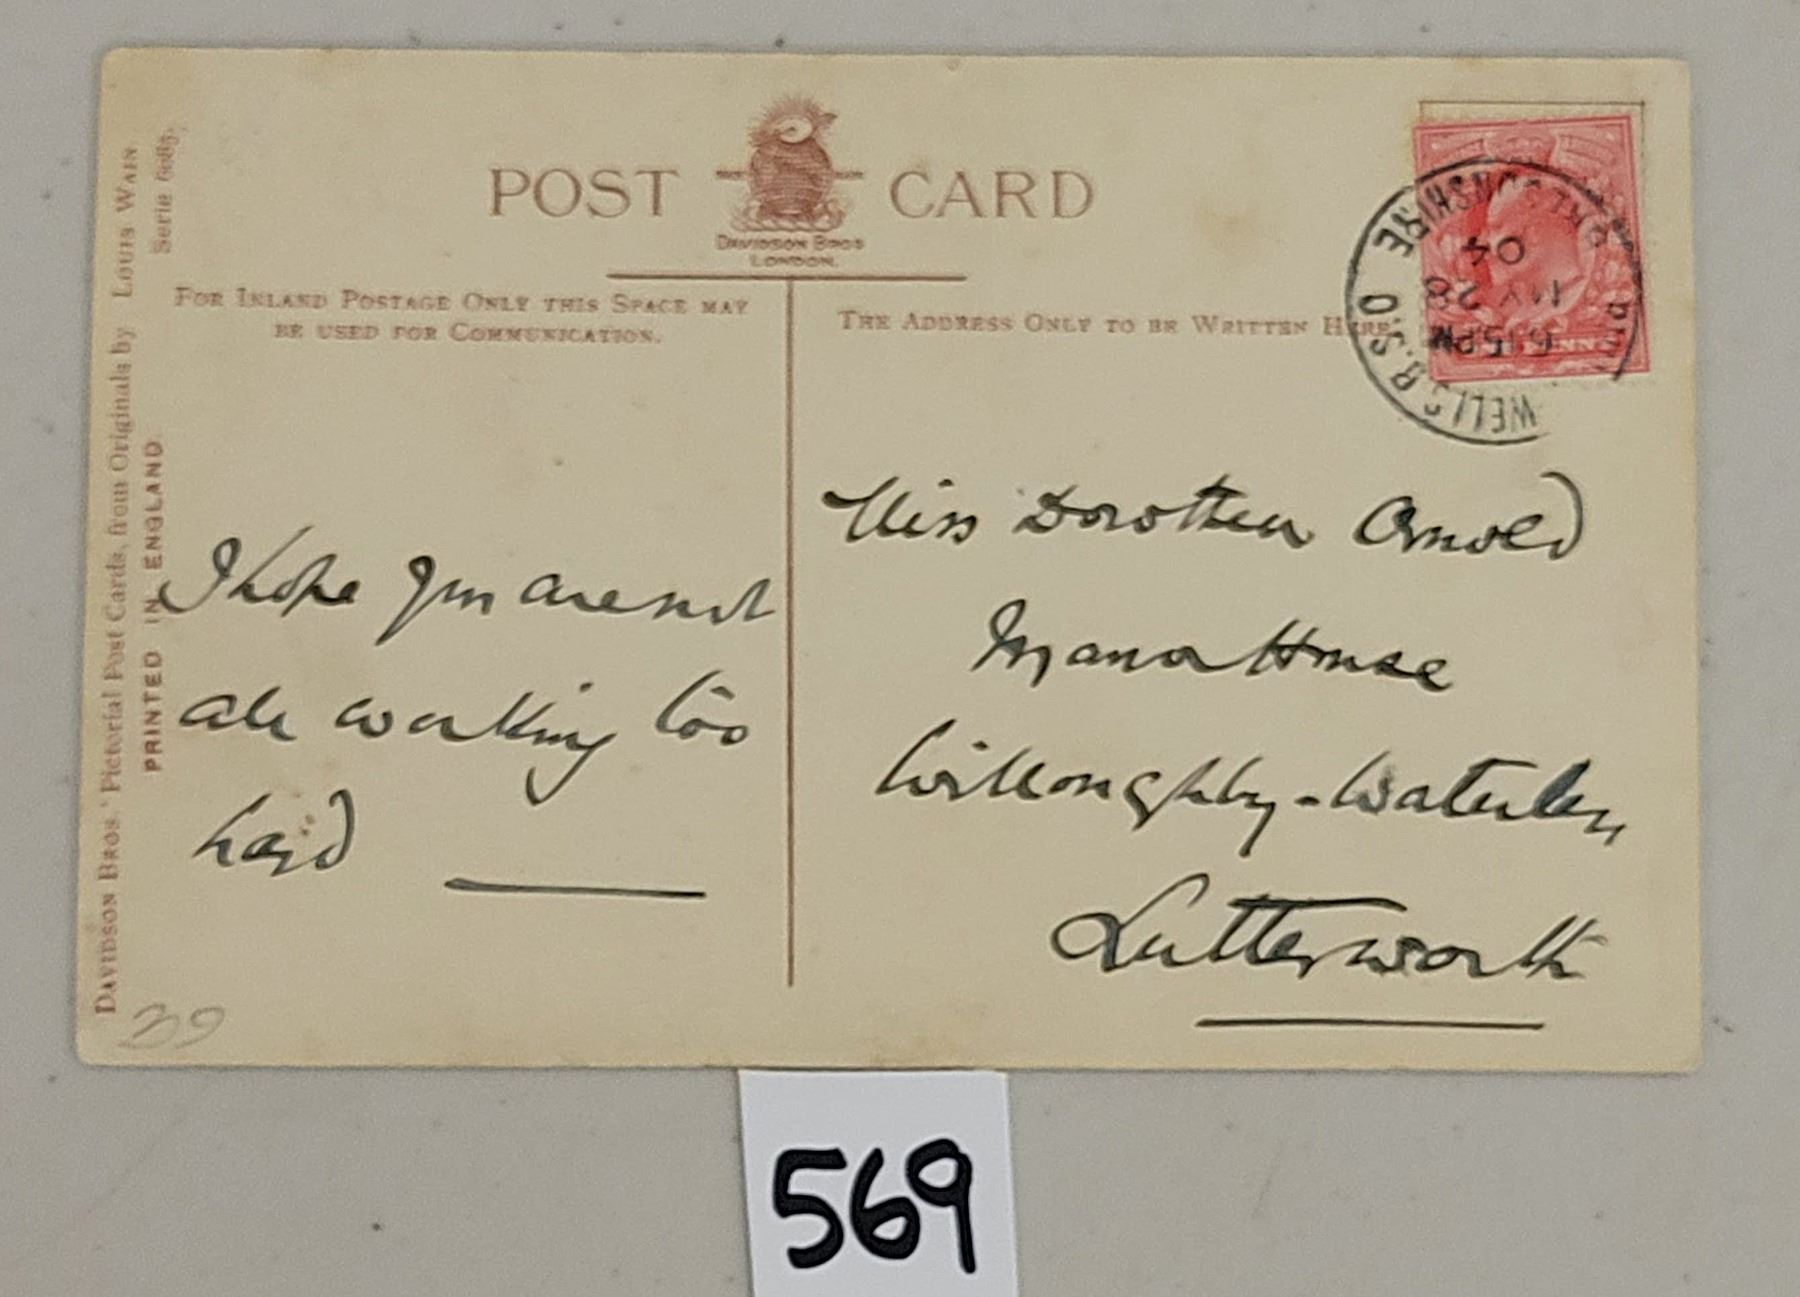 POST CARD
DAVIDSON BROS
LONDON.
FOR INLAND POSTAGE ONLY THIS SPACE MAY
BE USED FOR COMMUNICATION.
THE ADDRESS ONLY TO BE WRITTEN HERE
DAVIDSON BROS.' Pictorial Post Cards, from Originals by LOUIS WAIN
Serie
PRINTED IN ENGLAND
WELLS B.S.O
6.15PM
MY 28
04
I hope you are not
all working too
hard
Miss Dorothea Arnold
Manor House
Willoughby-Waterley
Lutterworth
39
569